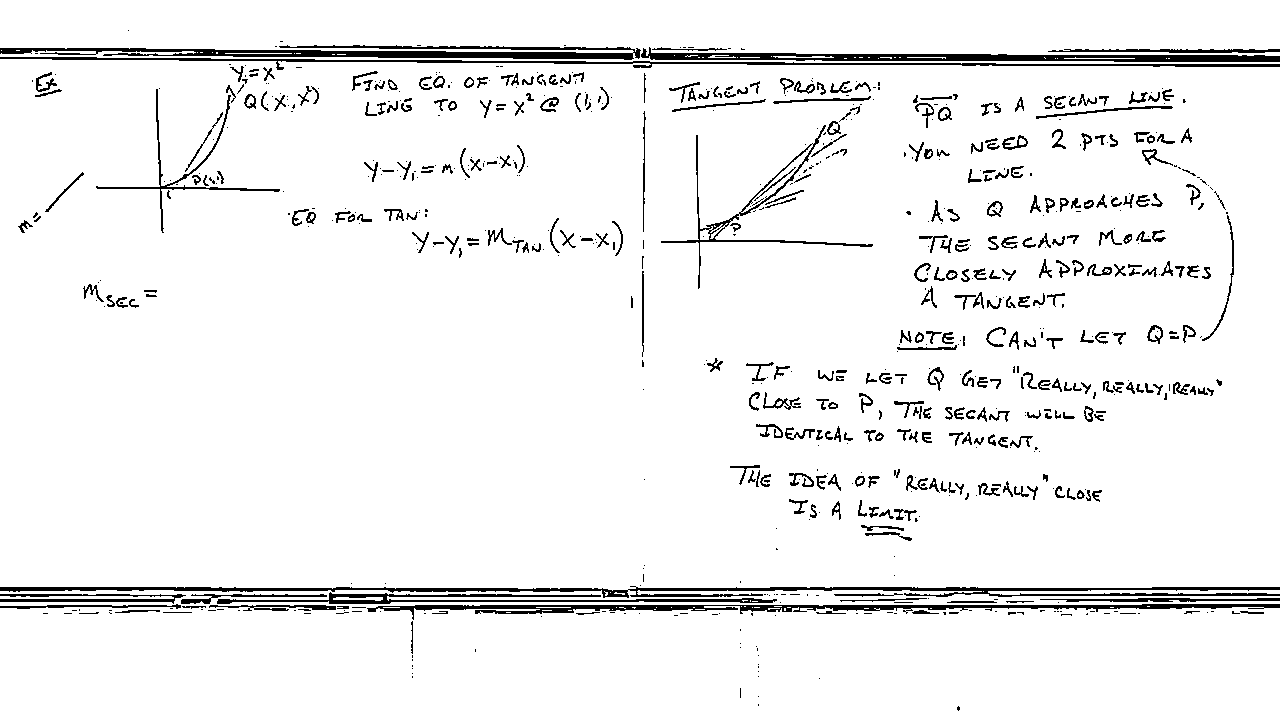 Ex
Y=X²
Q(X,X²)
P(1,1)
1
m=
FIND EQ. OF TANGENT
LINE TO Y=X² @ (1,1)
Y-Y₁=m(X-X₁)
EQ FOR TAN:
Y-Y₁=m_TAN(X-X₁)
m_SEC=
TANGENT PROBLEM:
Q
P
PQ IS A SECANT LINE.
· YOU NEED 2 PTS FOR A
LINE.
· AS Q APPROACHES P,
THE SECANT MORE
CLOSELY APPROXIMATES
A TANGENT.
NOTE: CAN'T LET Q=P
* IF WE LET Q GET "REALLY, REALLY, REALLY"
CLOSE TO P, THE SECANT WILL BE
IDENTICAL TO THE TANGENT.
THE IDEA OF "REALLY, REALLY" CLOSE
IS A LIMIT.